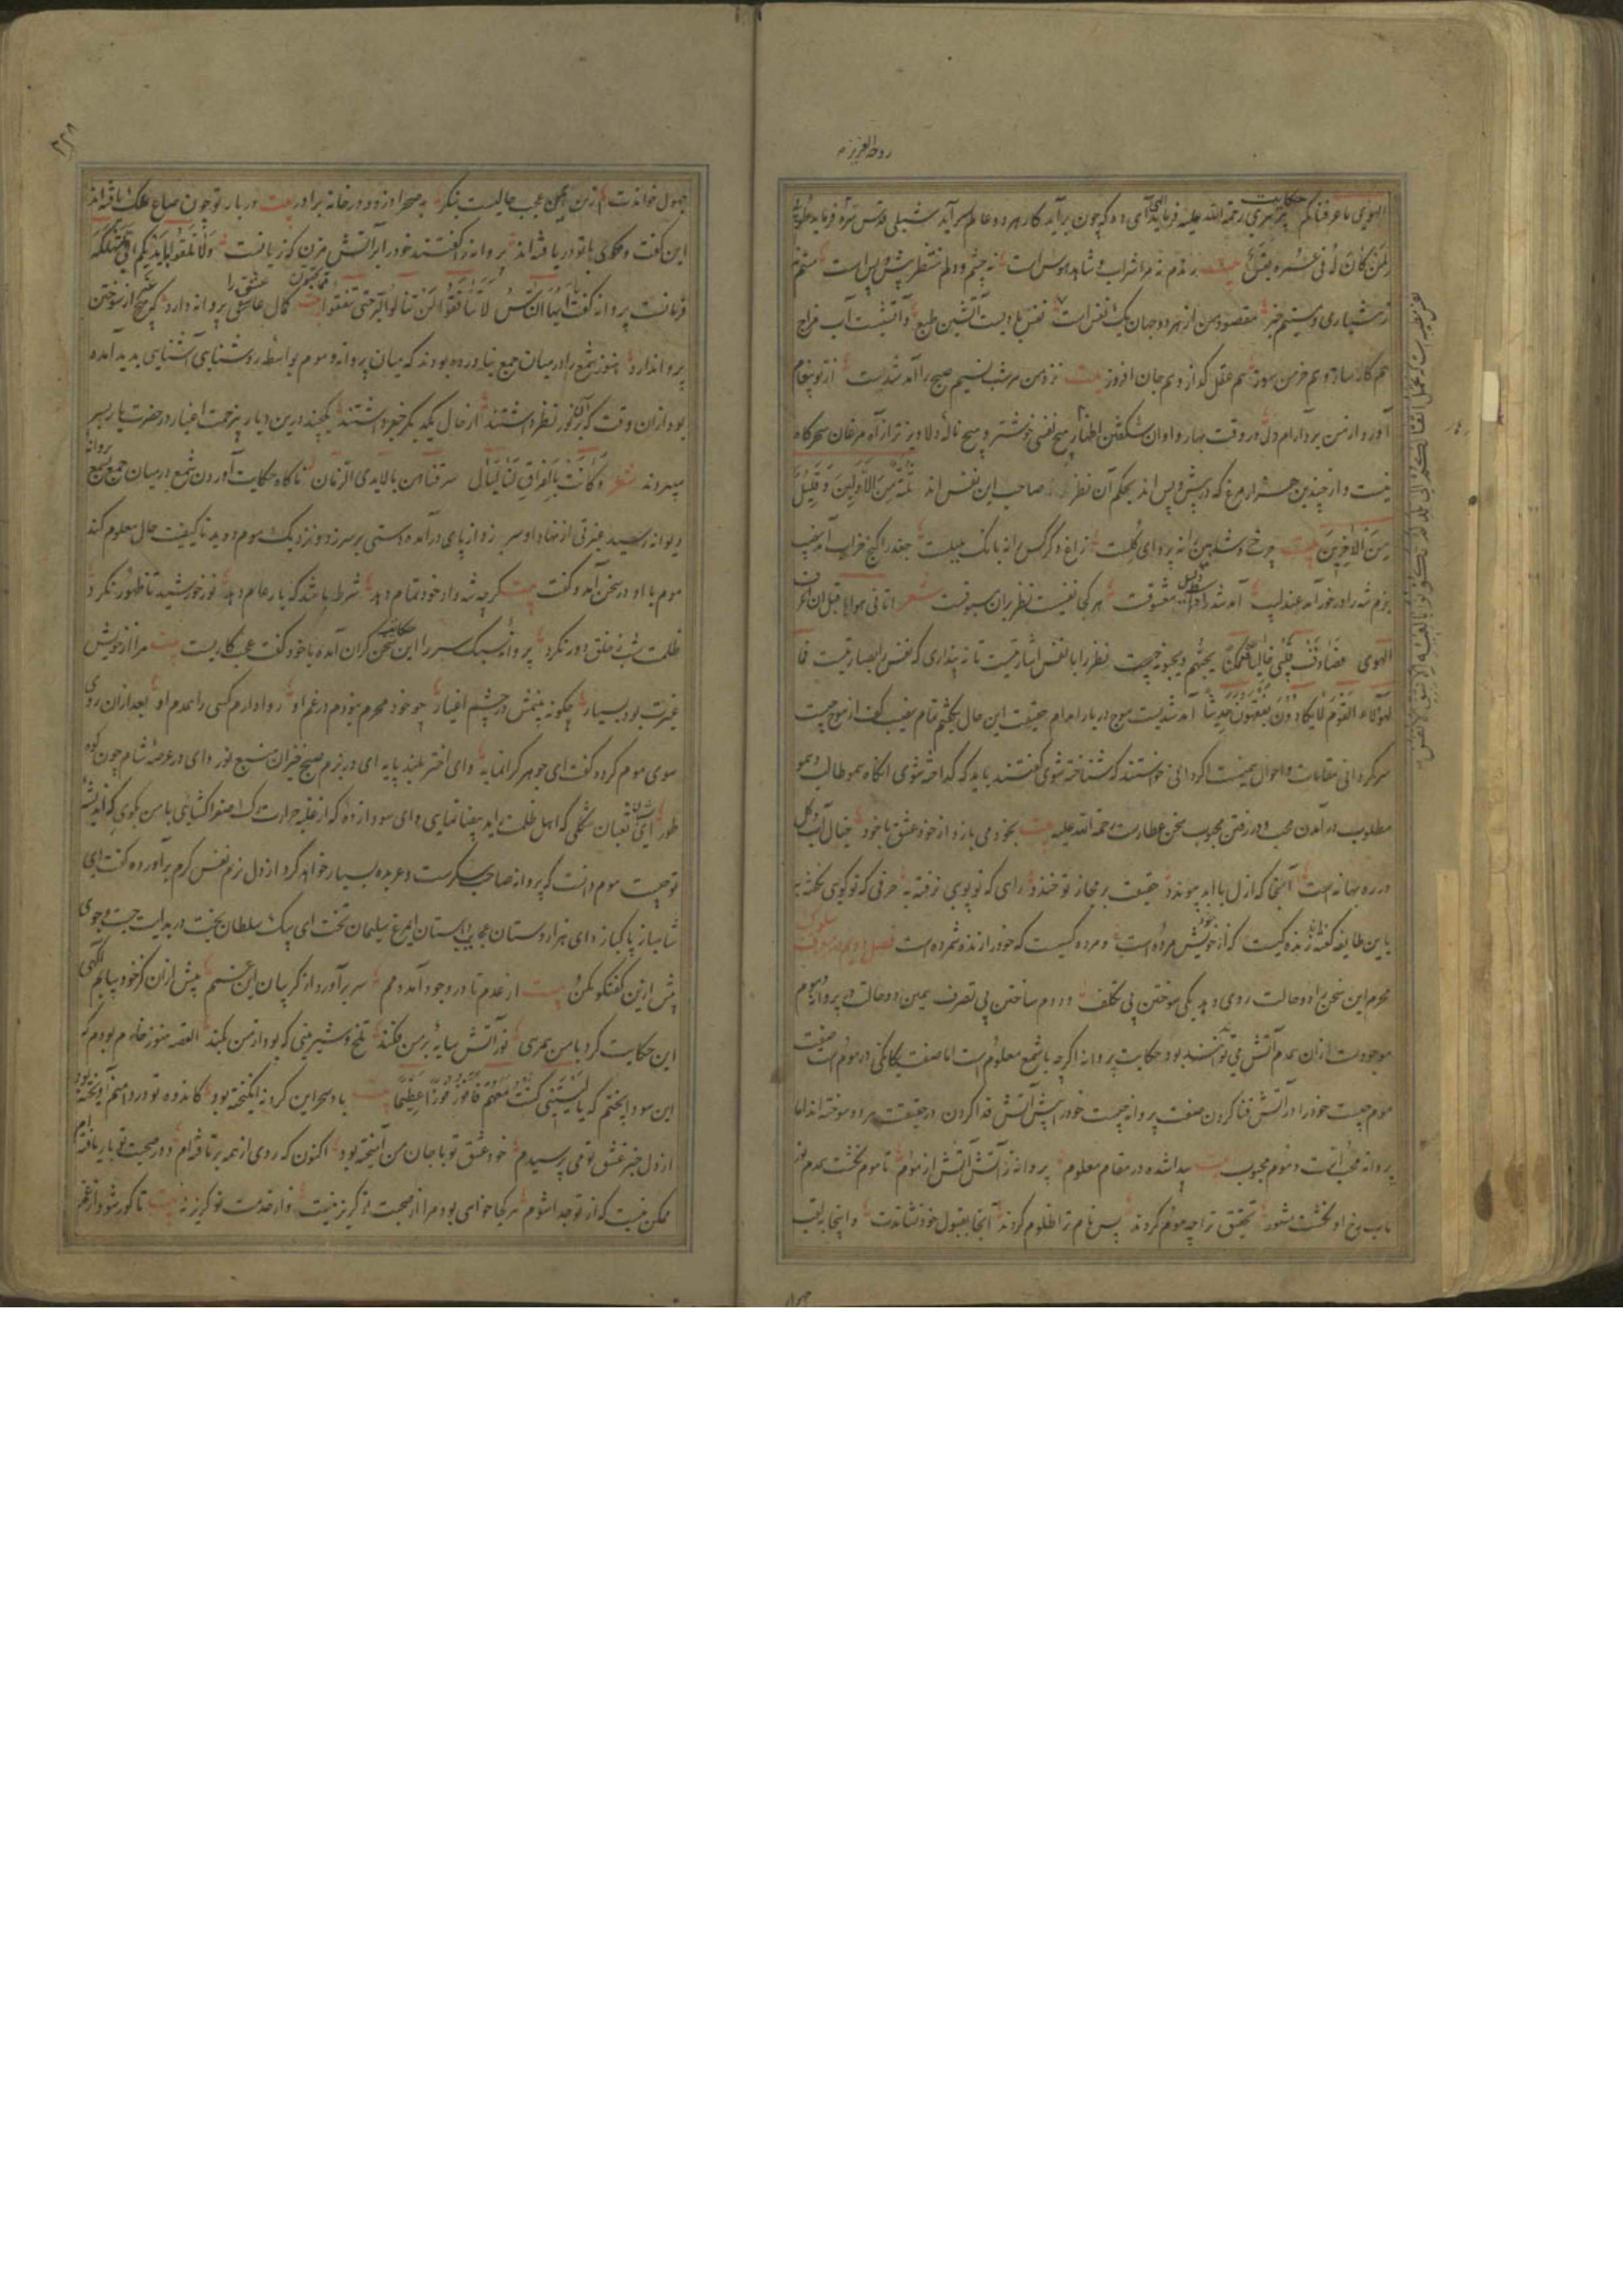 روح العزیز م
الهوی ما عرفناکم حکایت پیر هری رحمة الله علیه فرماید الهی آهی ده که چون برآید کار هر دو عالم سرآید شبلی قدس سره فرماید
لمن کان له فی عمره نفس بیت بر نام نه مرا شراب و شاهد هوس است نه چشم و دلم منتظر پیش و پس است مستم
ز هشیاری و نیستم خبر مقصود من از هر دو جهان یک نفس است نفس بادیست آتشین طبع و آتشیست آب مزاج
هم کار ساز و هم خرمن سوز هم عقل گداز و هم جان افروز بیت نزد من هر شب نسیم صبح را آمد شدیست از تو پیغام
آورد از من بر دارم دل در وقت بهار و اوان شکفتن ازهار هیچ نفسی خوشتر و هیچ ناله دلاویزتر از آه مرغان سحرگاه
نیست و از چندین هزار مرغ که در پیش و پس اند بحکم آن نظر صاحب این نفس اند ثلة من الاولین و قلیل
من الآخرین بیت چرخ و شاهین را نه پروای گلست زاغ و کرکس را نه بانگ بلبلست جغد را کنج خراب آمد نصیب
بزم شه را در خور آمد عندلیب معشوقست هر کجا نفسیست نظر بران مسبوقست شعر اتانی هواها قبل ان اعرف
الهوی فصادف قلبی خالیا فتمکنا یحبهم و یحبونه چیست نظر را با نفس انبازیست تا نه پنداری که نفس را بصارتیست فما
لهؤلاء القوم لا یکادون یفقهون حدیثا آمد شدیست موج دریا را مدام حقیقت این حال بچشم تمام
سرگردانی مقامات و احوال همینست اگر دانی خواستند که شناخته شوی گفتند باید که گداخته شوی آنگاه هم طالب و هم
مطلوب در آمدن محب و در رفتن محبوب سخن عطارست رحمة الله علیه بیت بخود می بازد از خود عشق با خود خیال آب و گل
در ره بهانه است آنجا که ازل با ابد پیوندد حقیقت بر مجاز تو خندد رای که تو پویی نرفته به حرفی که تو گویی نگفته به
با این طایفه گفته اند زنده کیست که از خویش مرده است و مرده کیست که خود را زنده شمرده است
محرم این سخن را دو حالت روی دهد یکی سوختن بی تکلف و دوم ساختن بی تصرف همین دو حالت در پروانه و موم
موجودست ازان همدم آتش می توانستند بود حکایت پروانه اگرچه با شمع معلومست اما صفت یکانگی در مومست صفت
موم چیست خود را در آتش فنا کردن صفت پروانه چیست خود را پیش آتش فدا کردن در حقیقت هر دو سوخته اند اما
پروانه محب آتش است و موم محبوب بیت پیدا شده در مقام معلوم پروانه ز آتش آتش از موم تا موم نگشت همدم نور
تاب رخ او نگشت مشهور تحقیق ترا چه موم کردند پس نام ترا ظلوم کردند آنجا بقبول خود نشاندت و اینجا بلقب
جهول
۲۳۸
جهول خواندت زین همین عجب حالیست بنگر به صحرا دزد و در خانه برادر بیت در بار تو چون صاع ملک یافته اند
این گفت و مگوی با تو دریافته اند پروانه را گفتند خود را بر آتش مزن که زیانست ولا تلقوا بایدیکم الی التهلکة
فرمانست پروانه گفت یا ایها الناس لا تنافقوا لن تنالوا البر حتی تنفقوا مما تحبون بیت کمال عاشقی پروانه دارد که هیچ از سوختن
پروا ندارد هنوز شمع را در میان جمع نیاورده بودند که میان پروانه و موم بواسطه روشنایی آشنایی پدید آمده
بود ازان وقت که از نور نظر داشتند از حال یکدیگر خبر داشتند یکچند درین دیار بی زحمت اغیار در حضرت یار بسر
میبردند شعر وکانت بالفراق لنا لیال سرقناهن بالایدی الزمان ناگاه حکایت آوردن شمع در میان جمع بسمع پروانه
دیوانه رسید غیرتی از نهاد او سر زد از پای درآمد دستی بر سر زد و نزدیک موم دوید تا کیفیت حال معلوم کند
موم با او در سخن آمد و گفت بیت گرچه شه داد خود تمام دهد شرط باشد که بار عام دهد نور خورشید تا ظهور نکرد
ظلمت شب ز خلق دور نکرد پروانه سبک سر را این سخن گران آمد با خود گفت عجب کاریست بیت مرا از خویش
غیرت بود بسیار چگونه بینمش در چشم اغیار چو خود محرم نبودم در غم او روا دارم کسی را همدم او بعد ازان روی
سوی موم کرد و گفت ای جوهر گرانمایه و ای اختر بلند پایه ای در بزم صبح خیزان منبع نور و ای در عرصه شام چون کوه
طور ای ثعبان شکلی که اهل ظلمت را ید بیضا نمایی و ای سودا زده که از غلبه حرارت صفرا گشایی با من بگوی که اندیشه
تو چیست موم دانست که پروانه صاحب سکرست و عربده بسیار خواهد کرد از دل نرم نفس گرم برآورد و گفت ای
شاهباز پاکباز و ای هزار دستان عجایب دستان ای مرغ سلیمان تخت ای پیک سلطان بخت در بدایت جست و جوی
پیش ازین گفتگو مکن بیت از عدم تا در وجود آمد دمم سر برآورد از گریبان این غمم پیش ازان کز خود بیابم آگهی
این حکایت کرد با من همرهی نور آتش سایه بر من فکند تلخ و شیرینی که بود از من بکند القصه هنوز خام بودم که
این سودا پختم که یا لیتنی کنت معهم فافوز فوزا عظیما بیت باد سحر این گرد نه انگیخته بود کاندوه تو در دامنم آویخته بود
از دل خبر عشق تو می پرسیدم خود عشق تو با جان من آمیخته بود اکنون که روی از همه برتافته ام و در صحبت تو بار یافته ام
ممکن نیست که از تو جدا شوم هر کجا خواهی بود مرا از صحبت تو گریز نیست و از خدمت تو گریز نه بیت تا کور شود